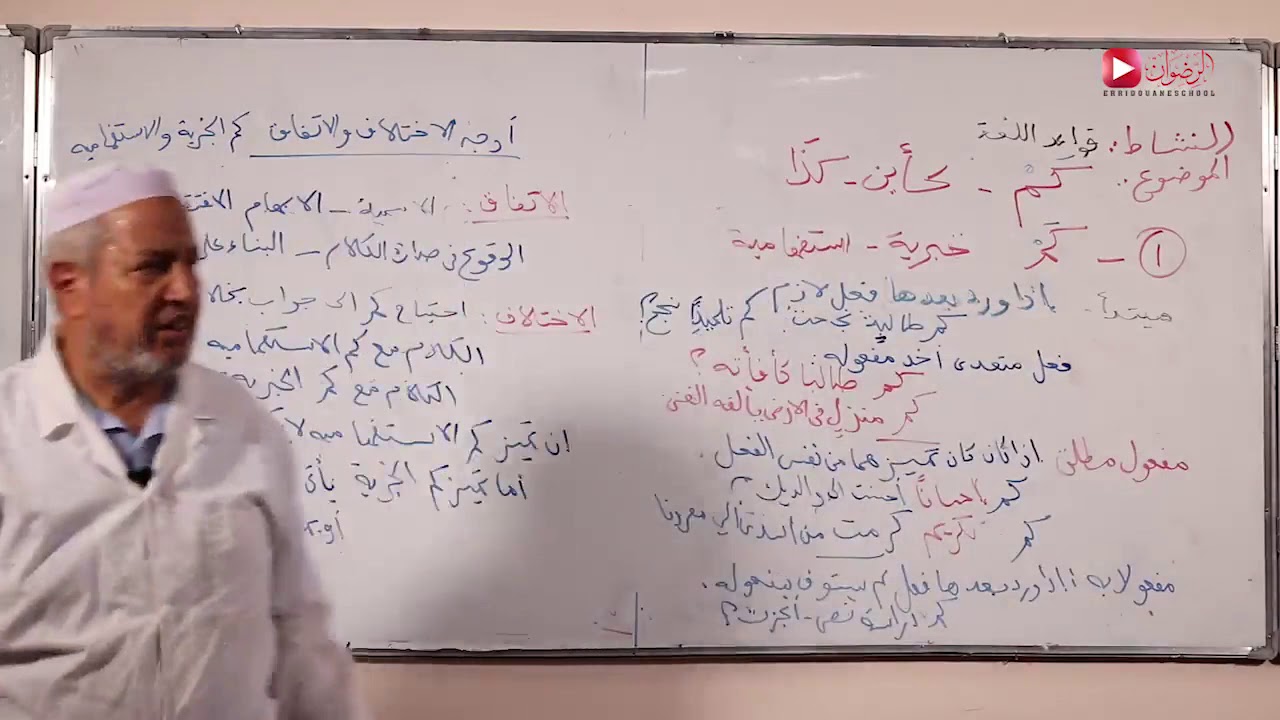 الرضوان
ERRIDOUANESCHOOL
النشاط: قواعد اللغة
الموضوع: كَمْ - كأين - كَذَا
١ - كَمْ خبرية - استفهامية
مبتدأ - إذا ورد بعدها فعل لازم كم تلميذًا نجح؟
كم طالبة نجحت
فعل متعدي أخذ مفعوله
كم طالبا كافأته؟
كم منزل في الارض يألفه الفتى
مفعول مطلق اذا كان تمييزهما من نفس الفعل.
كم إحسانًا أحسنت الى والديك؟
كم تكريم كرمت من
مفعولا به: اذا ورد بعدها فعل لم يستوف مفعوله.
كم دراسة نص أنجزت؟
أوجه الاختلاف والاتفاق كم الخبرية والاستفهامية
الاتفاق: الاسمية - الابهام
الوقوع في صدارة الكلام - البناء على
الاختلاف: احتياج كم الى جواب
الكلام مع كم الاستفهامية
الكلام مع كم الخبرية
ان تمييز كم الاستفهامية
أما تمييز كم الخبرية يأتي